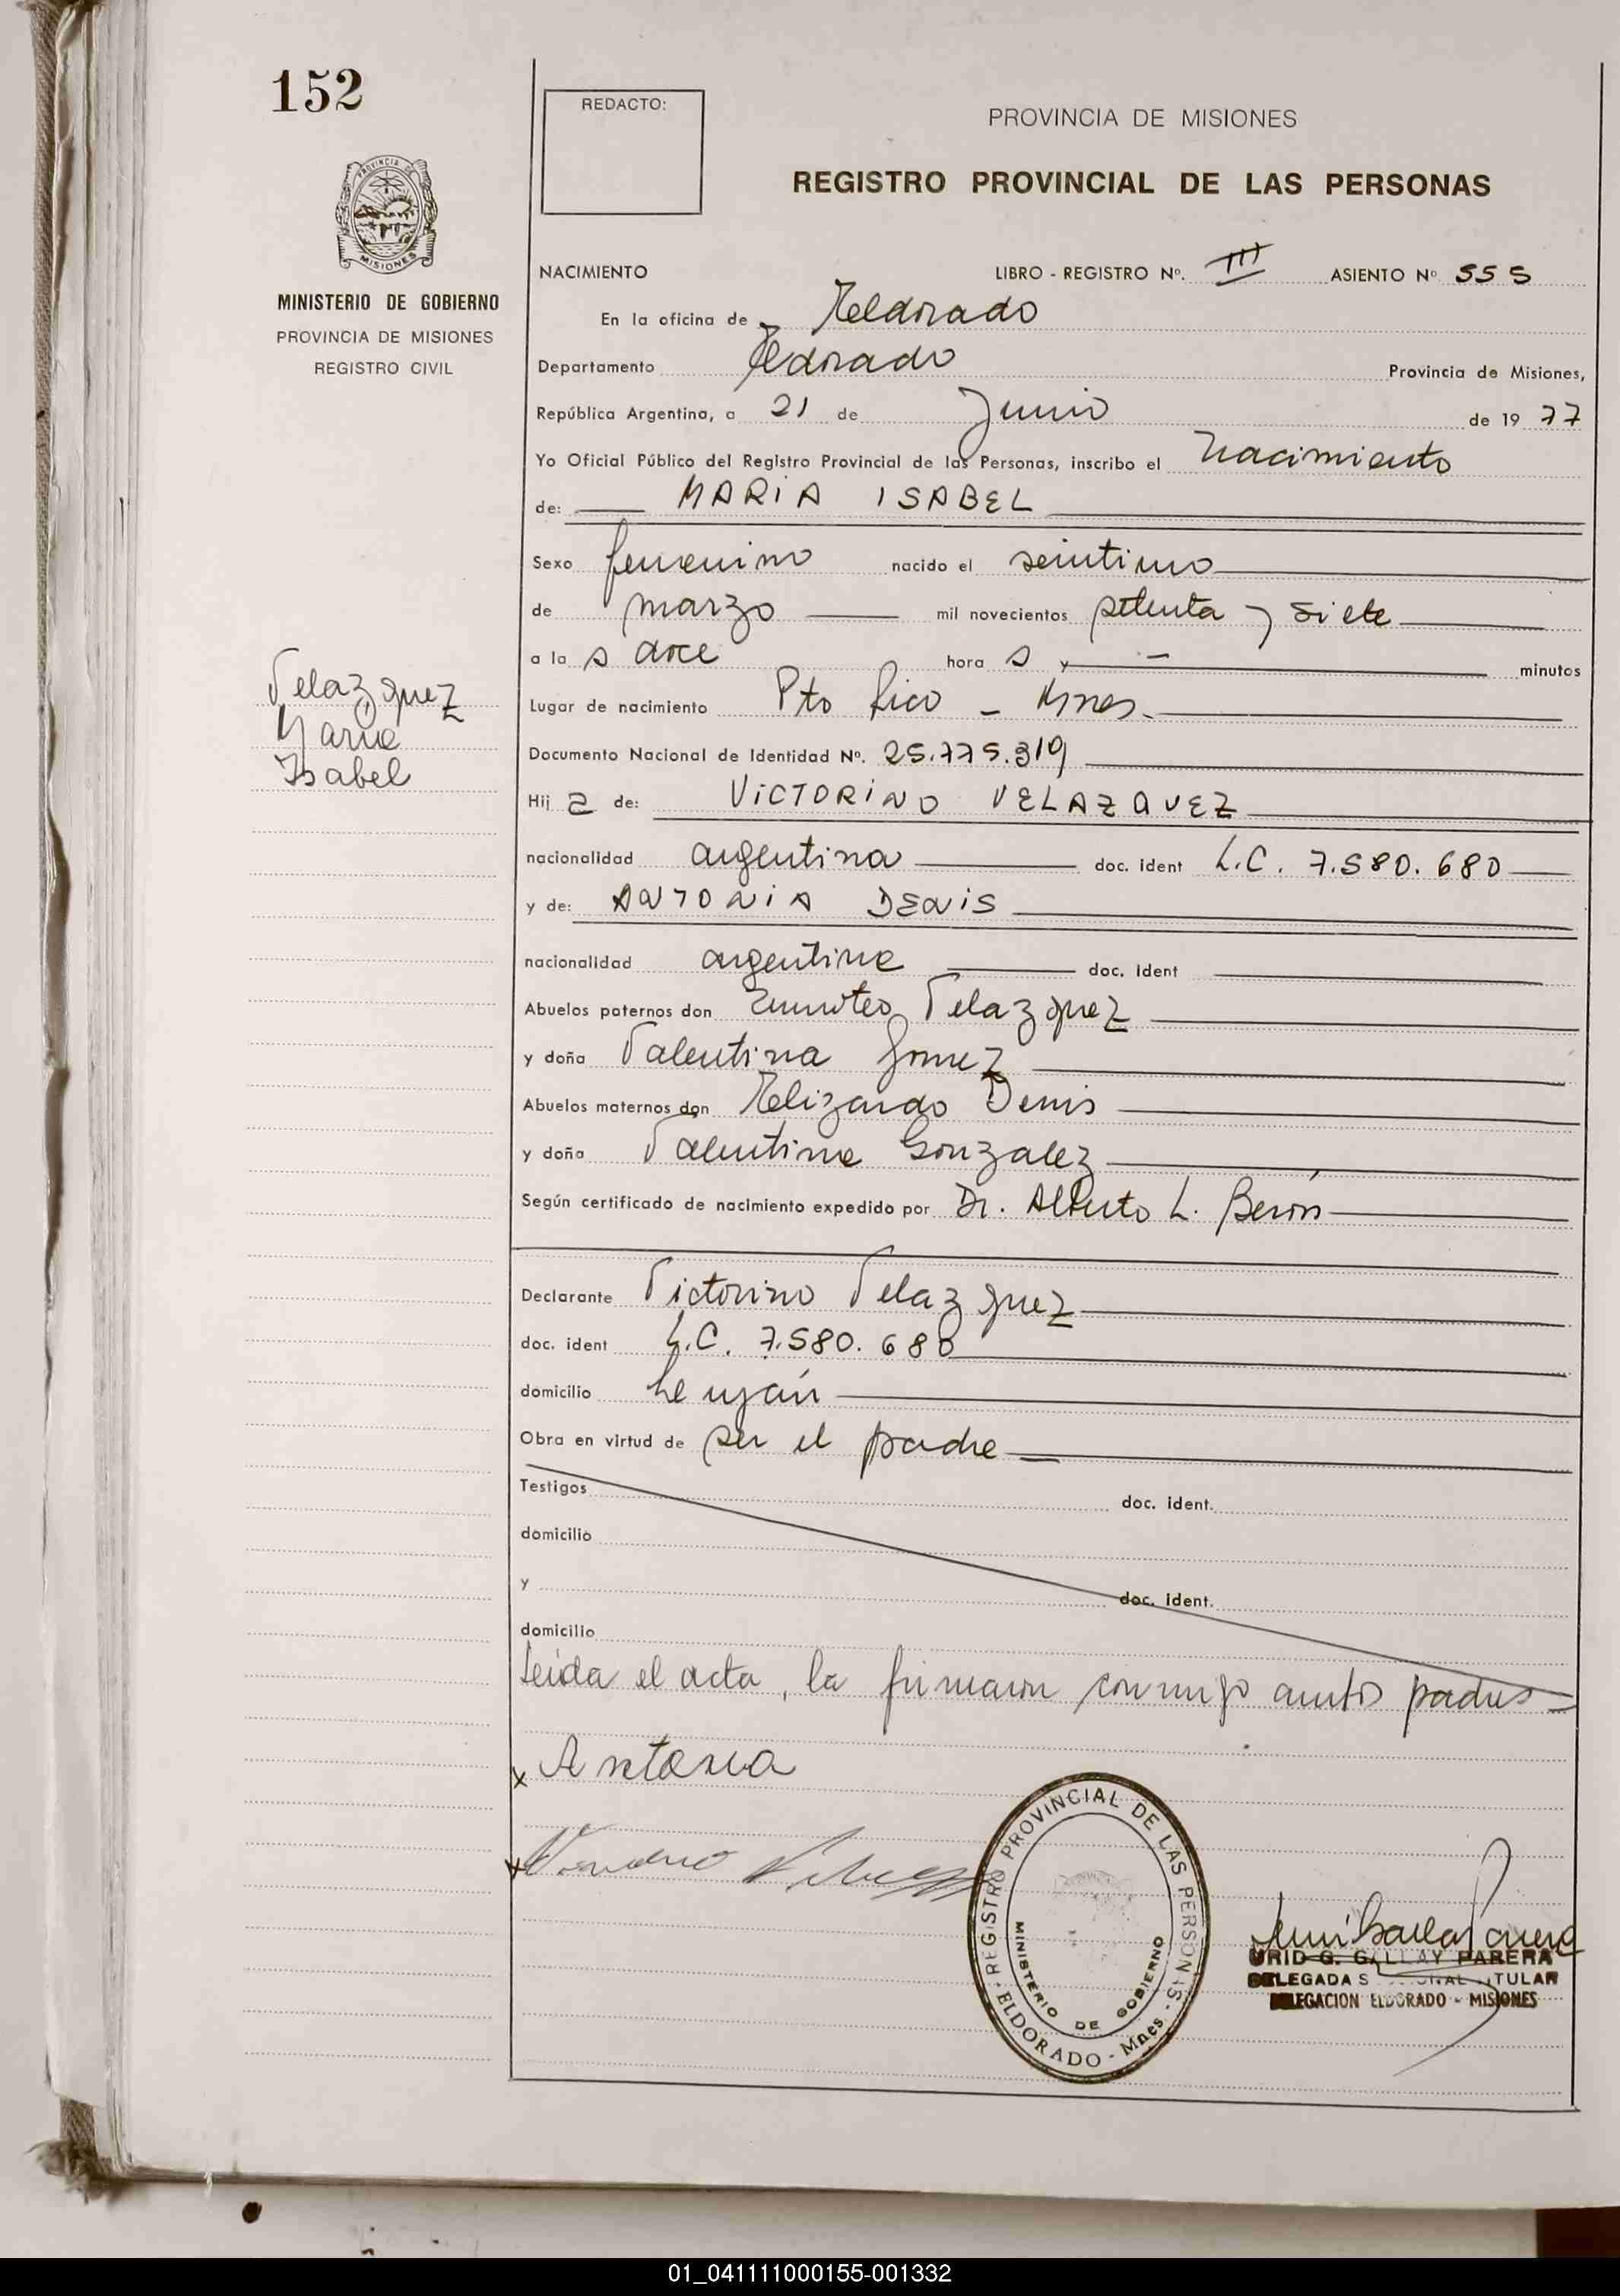 152
REDACTO:
PROVINCIA DE MISIONES
REGISTRO PROVINCIAL DE LAS PERSONAS
PROVINCIA DE
MISIONES
MINISTERIO DE GOBIERNO
PROVINCIA DE MISIONES
REGISTRO CIVIL
NACIMIENTO LIBRO - REGISTRO Nº. III ASIENTO Nº 555
En la oficina de Eldorado
Departamento Eldorado Provincia de Misiones,
República Argentina, a 21 de Junio de 19 77
Yo Oficial Público del Registro Provincial de las Personas, inscribo el nacimiento
de: MARIA ISABEL
Sexo femenino nacido el
de marzo mil novecientos setenta y siete
a la s doce hora s y — minutos
Velazquez
Maria
Isabel
Lugar de nacimiento Pto Rico - Mnes.
Documento Nacional de Identidad Nº. 25.775.319
Hij a de: VICTORINO VELAZQUEZ
nacionalidad argentina doc. ident L.C. 7.580.680
y de: ANTONIA DENIS
nacionalidad argentina doc. ident
Abuelos paternos don Velazquez
y doña Valentina Gomez
Abuelos maternos don Elizardo Denis
y doña Valentina Gonzalez
Según certificado de nacimiento expedido por Dr. Alberto L. Berón
Declarante Victorino Velazquez
doc. ident L.C. 7.580.680
domicilio
Obra en virtud de ser el padre
Testigos doc. ident.
domicilio
y doc. ident.
domicilio
Leida el acta, la firmaron conmigo ambos padres
x Antonia
x
REGISTRO PROVINCIAL DE LAS PERSONAS
MINISTERIO DE GOBIERNO
ELDORADO - Mnes
G. GALLAY PARERA
DELEGADA TITULAR
DELEGACION ELDORADO - MISIONES
01_041111000155-001332